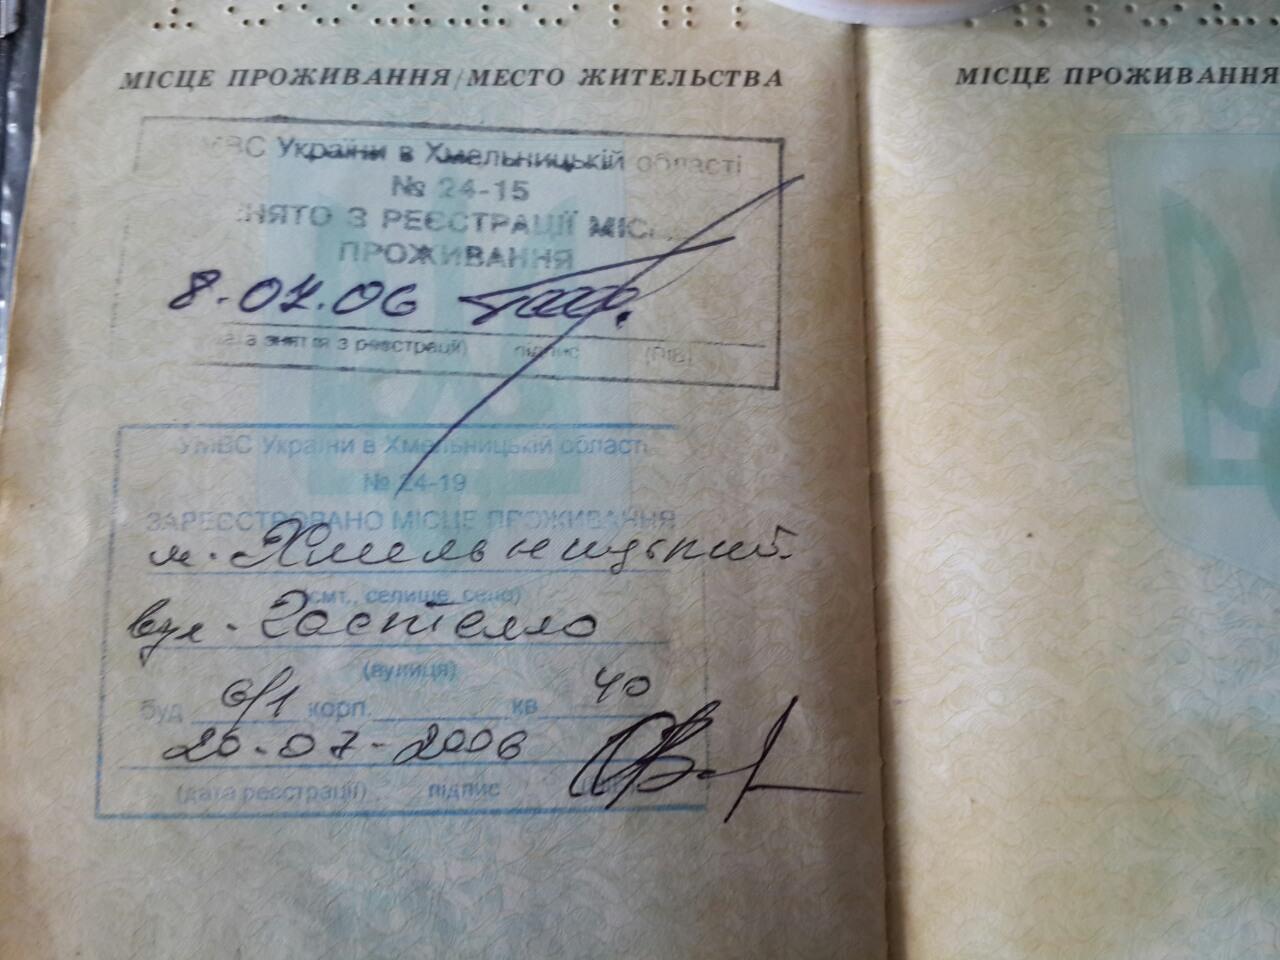 МІСЦЕ ПРОЖИВАННЯ/МЕСТО ЖИТЕЛЬСТВА
УМВС України в Хмельницькій області
№ 24-15
ЗНЯТО З РЕЄСТРАЦІЇ МІСЦЕ
ПРОЖИВАННЯ
8.07.06
(дата зняття з реєстрації) підпис (ПІБ)
УМВС України в Хмельницькій області
№ 24-19
ЗАРЕЄСТРОВАНО МІСЦЕ ПРОЖИВАННЯ
м. Хмельницький
смт., селище, село)
вул. Гастелло
(вулиця)
буд 6/1 корп. кв 40
20-07-2006
(дата реєстрації) підпис
МІСЦЕ ПРОЖИВАННЯ